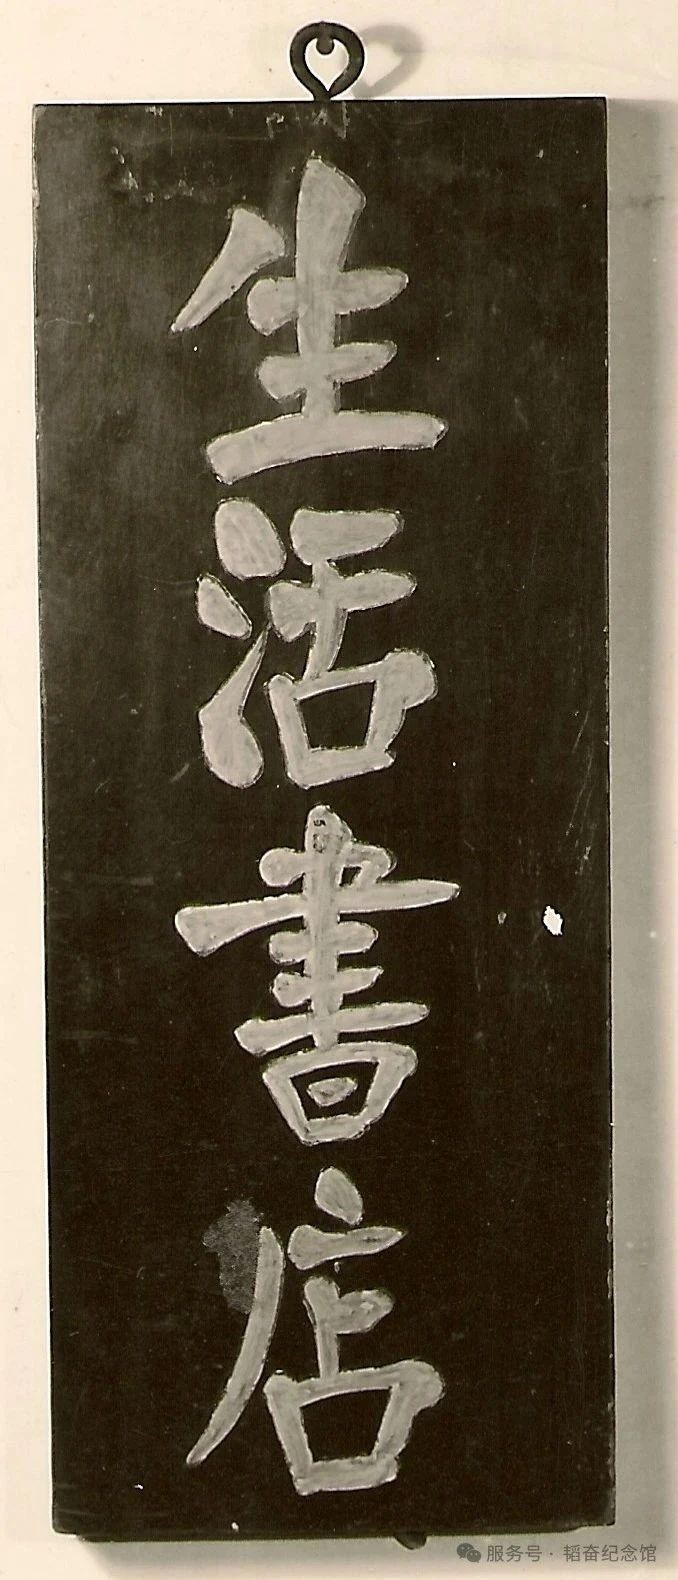 生活書店
服务号 · 韬奋纪念馆